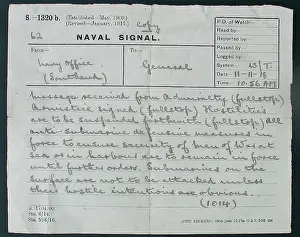 S. 1320 b.
(Established—May, 1900.)
(Revised—January, 1917.)
Copy
P.O. of Watch—
Read by—
Reported by—
Passed by—
Logged by—
System— W/T.
Date— 11-11-18
Time— 10.56 AM
62
NAVAL SIGNAL.
From—
To—
Navy Office
(Southend)
General
Message received from Admiralty (fullstop)
Armistice signed (fullstop) Hostilities
are to be suspended forthwith (fullstop) All
anti-submarine defensive measures in
force to ensure security of men of War at
Sea or in harbour are to remain in force
until further orders. Submarines on the
surface are not to be attacked unless
their hostile intentions are obvious.
(1014)